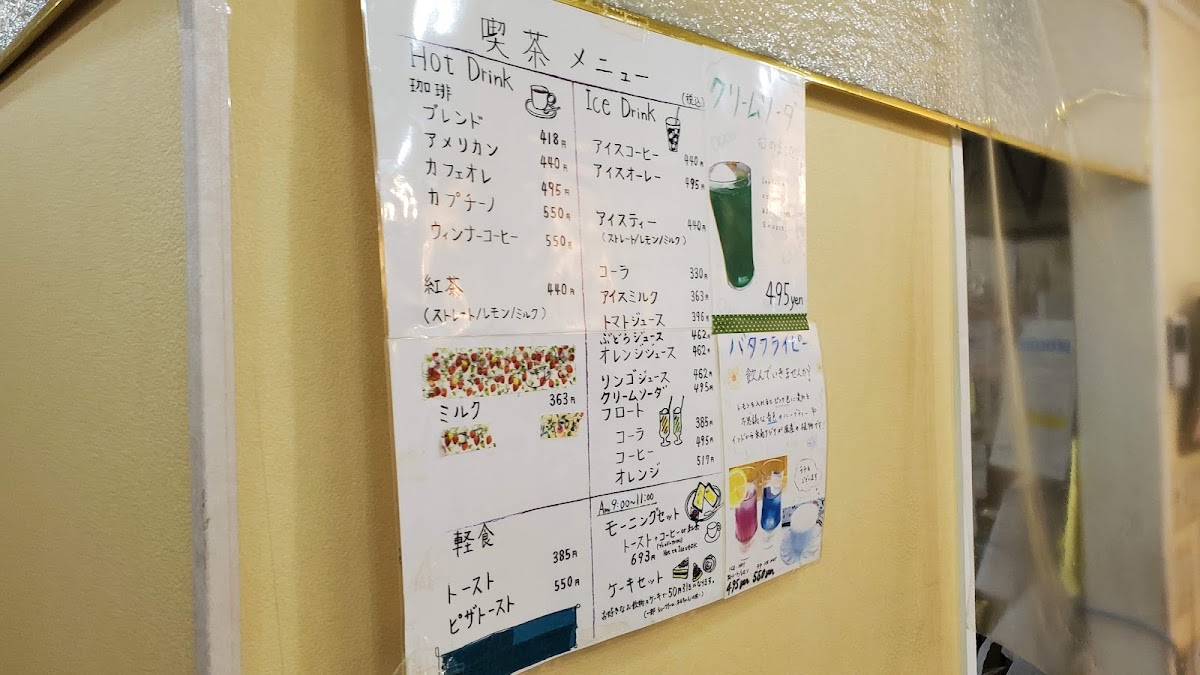 喫茶メニュー
Hot Drink
珈琲
ブレンド 418円
アメリカン 440円
カフェオレ 495円
カプチーノ 550円
ウィンナーコーヒー 550円
紅茶 440円
(ストレート/レモン/ミルク)
ミルク 363円
軽食
トースト 385円
ピザトースト 550円
(税込)
Ice Drink
アイスコーヒー 440円
アイスオーレー 495円
アイスティー 440円
(ストレート/レモン/ミルク)
コーラ 330円
アイスミルク 363円
トマトジュース 396円
ぶどうジュース 462円
オレンジジュース 462円
リンゴジュース 462円
クリームソーダ 495円
フロート
コーラ 385円
コーヒー 495円
オレンジ 517円
Am 9:00~11:00
モーニングセット
トースト+コーヒー or 紅茶
693円
Hot or Ice もOK
ケーキセット
お好きなお飲物とケーキで50円引きになります。
クリームソーダ
495yen
バタフライピー
飲んでいきませんか?
495yen
550yen